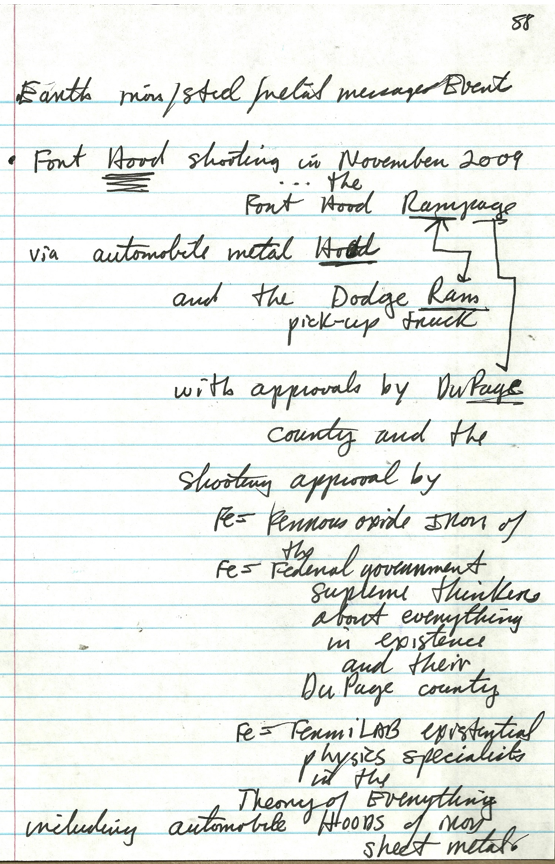 88
Earth iron/steel/metal messages Event
• Fort Hood shooting in November 2009
... the
Fort Hood Rampage
via automobile metal Hood
and the Dodge Ram
pick-up truck
with approvals by DuPage
county and the
shooting approval by
Fe= Ferrous oxide Iron of
the
Fe= Federal government
supreme thinkers
about everything
in existence
and their
DuPage county
Fe= FermiLAB existential
physics specialists
in the
Theory of Everything
including automobile HOODs of iron
sheet metal.